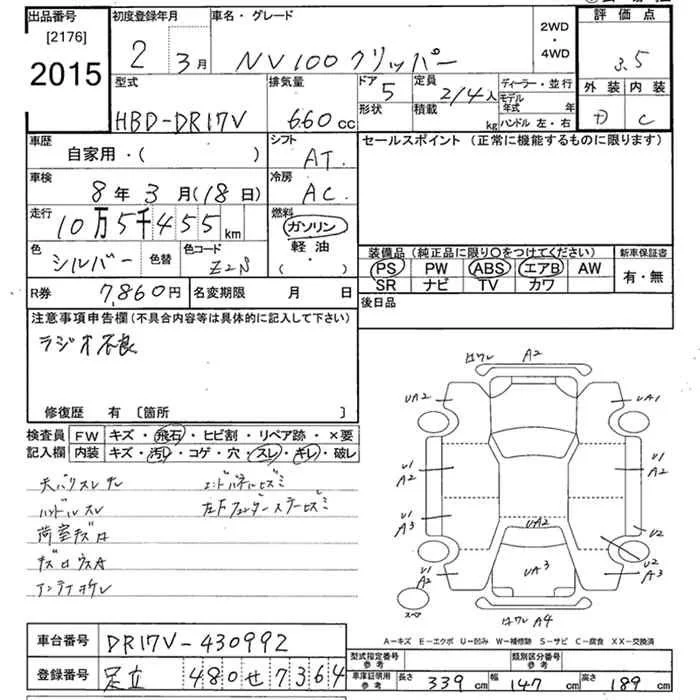 出品番号 初度登録年月 車名・グレード 2WD・4WD 評価点
[2176] 2 3月 NV100クリッパー 3.5
2015
型式 排気量 ドア 定員 ディーラー・並行 外装 内装
HBD-DR17V 660cc 5 2/4人 モデル年式 年
形状 積載 kg ハンドル 左・右 D C
車歴 シフト セールスポイント (正常に機能するものに限ります)
自家用・( ) AT
車検 冷房
8年3月(18日) AC
走行 燃料
10万5千455km ガソリン
軽油
( ・ )
色 色替 色コード 装備品 (純正品に限り○をつけてください) 新車保証書
シルバー Z2N PS PW ABS エアB AW 有・無
SR ナビ TV カワ
R券 7,860円 名変期限 月 日 後日品
注意事項申告欄 (不具合内容等は具体的に記入して下さい)
ラジオ不良
修復歴 有 〔箇所 〕
検査員 FW キズ・飛石・ヒビ割・リペア跡・×要
記入欄 内装 キズ・汚レ・コゲ・穴・スレ・キレ・破レ
ハンドルスレ
荷室キズ
A2
UA2 UA1
U1 A2 U1 A2
U1 A3 UA2 U2
U1 A2 UA3 U2 A3
A4
A－キズ E－エクボ U－凹み W－補修跡 S－サビ C－腐食 XX－交換済
車台番号 DR17V-430992 型式指定番号 参考 類別区分番号 参考
登録番号 足立 480 せ 7364 車庫証明用 参考 長さ 339cm 幅 147cm 高さ 189cm